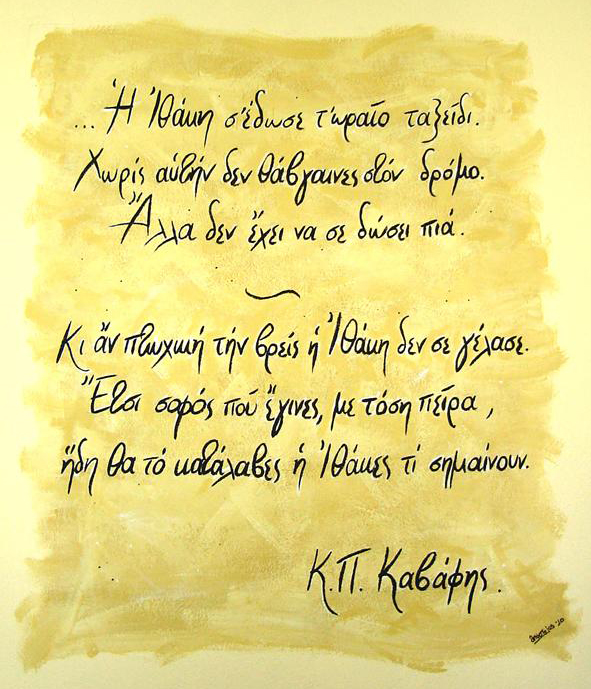 ... Ἡ Ἰθάκη σ' έδωσε τ' ωραίο ταξείδι.
Χωρίς αὐτήν δεν θάβγαινες στόν δρόμο.
Ἄλλα δεν ἔχει να σε δώσει πιά.
Κι ἄν πτωχική τήν βρείς ἡ Ἰθάκη δεν σε γέλασε.
Ἔτσι σοφός πού ἔγινες, με τόση πείρα,
ἤδη θα τό κατάλαβες ἡ Ἰθάκες τί σημαίνουν.
Κ.Π. Καβάφης.